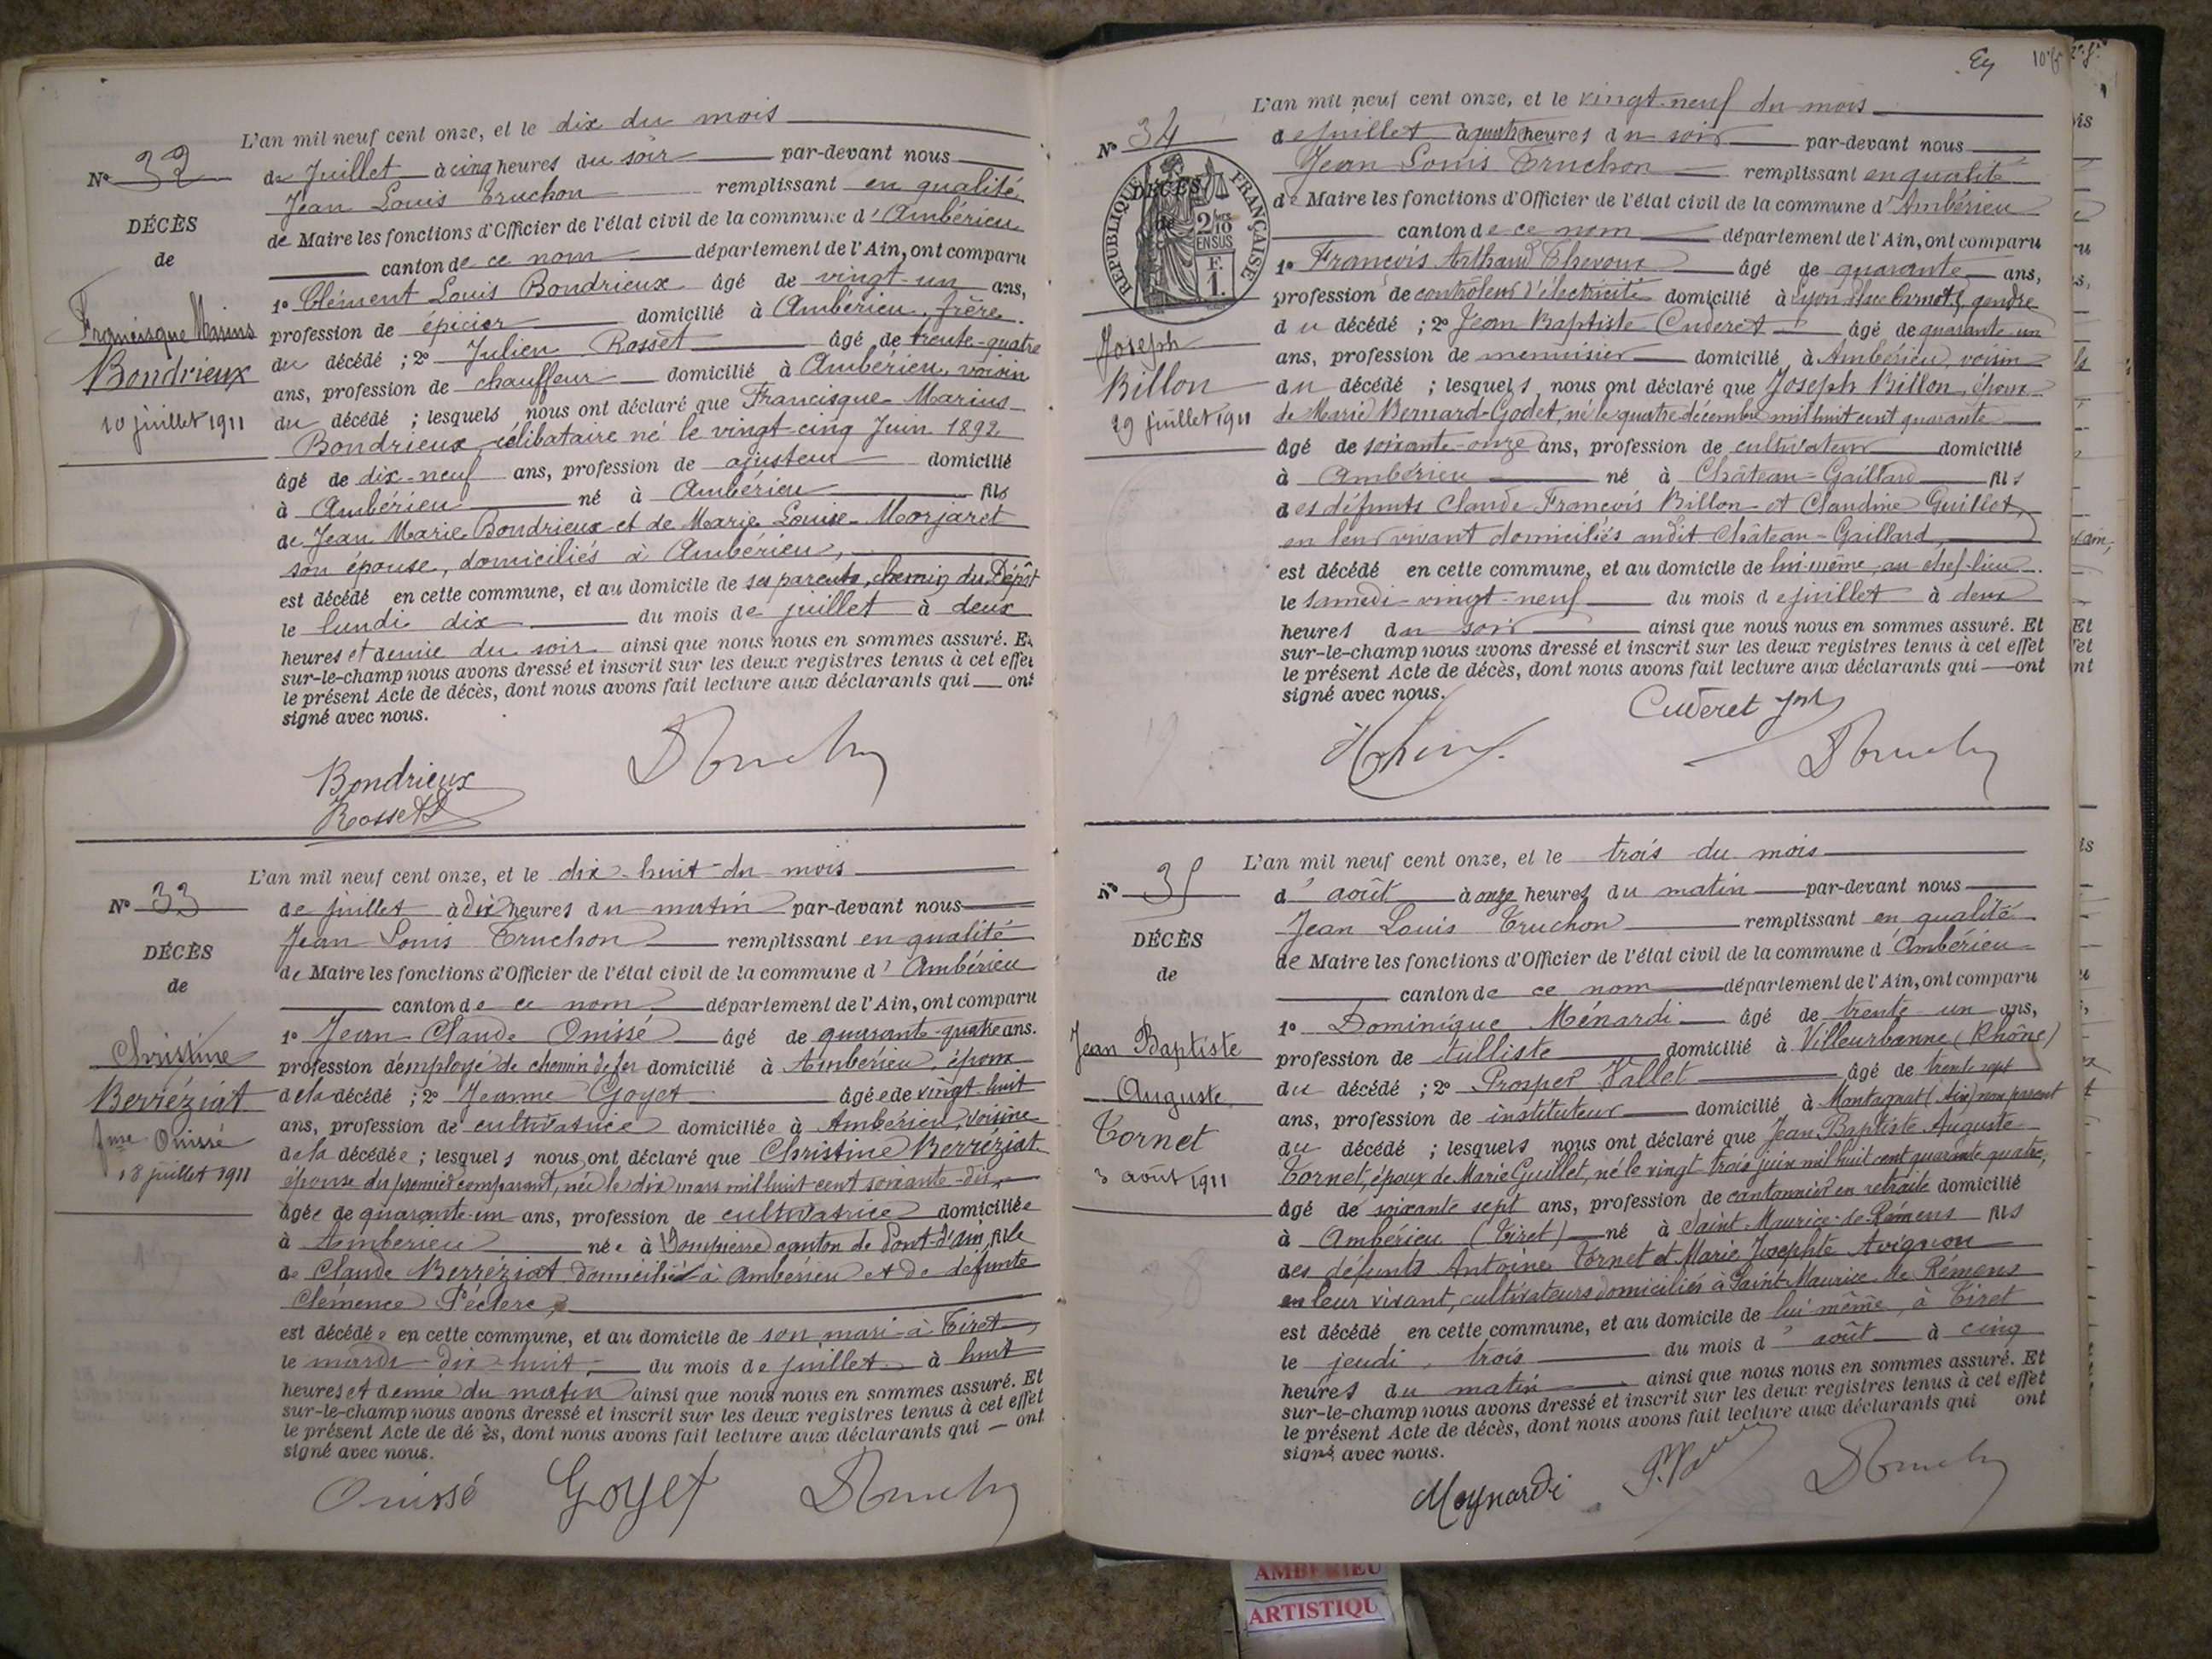 L'an mil neuf cent onze, et le dix du mois
N° 32
de Juillet à cinq heures du soir par-devant nous
Jean Louis Truchon remplissant en qualité
DÉCÈS
de Maire les fonctions d'Officier de l'état civil de la commune d'Ambérieu
de
canton de ce nom département de l'Ain, ont comparu
1° Clément Louis Bondrieux âgé de vingt-un ans,
Francisque Marius
profession de épicier domicilié à Ambérieu, frère
du décédé ; 2° Julien Rosset âgé de trente-quatre
Bondrieux
ans, profession de chauffeur domicilié à Ambérieu, voisin
10 juillet 1911
du décédé ; lesquels nous ont déclaré que Francisque Marius
Bondrieux, célibataire né le vingt-cinq Juin 1892
âgé de dix-neuf ans, profession de ajusteur domicilié
à Ambérieu né à Ambérieu fils
de Jean Marie Bondrieux et de Marie Louise Morjaret
son épouse, domiciliés à Ambérieu,
est décédé en cette commune, et au domicile de ses parents, chemin du Dépôt
le lundi dix du mois de juillet à deux
heures et demie du soir ainsi que nous nous en sommes assuré. Et
sur-le-champ nous avons dressé et inscrit sur les deux registres tenus à cet effet
le présent Acte de décès, dont nous avons fait lecture aux déclarants qui ont
signé avec nous.
Bondrieux
Rosset
L'an mil neuf cent onze, et le dix-huit du mois
N° 33
de juillet à dix heures du matin par-devant nous
Jean Louis Truchon remplissant en qualité
DÉCÈS
de Maire les fonctions d'Officier de l'état civil de la commune d'Ambérieu
de
canton de ce nom département de l'Ain, ont comparu
1° Jean Claude Onissé âgé de quarante-quatre ans.
Christine
profession d'employé de chemin de fer domicilié à Ambérieu, époux
Berréziat
de la décédé ; 2° Jeanne Goyet âgée de vingt-huit
ans, profession de cultivatrice domiciliée à Ambérieu, voisine
fme Onissé
de la décédée ; lesquels nous ont déclaré que Christine Berréziat
18 juillet 1911
épouse du premier comparant, née le dix mars mil huit cent soixante-dix,
âgée de quarante-un ans, profession de cultivatrice domiciliée
à Ambérieu née à Dompierre canton de Pont-d'ain, fille
de Claude Berréziat domicilié à Ambérieu et de défunte
Clémence Péclerc,
est décédée en cette commune, et au domicile de son mari à Tiret,
le mardi dix-huit du mois de juillet à huit
heures et demie du matin ainsi que nous nous en sommes assuré. Et
sur-le-champ nous avons dressé et inscrit sur les deux registres tenus à cet effet
le présent Acte de dé ès, dont nous avons fait lecture aux déclarants qui ont
signé avec nous.
Onissé Goyet
L'an mil neuf cent onze, et le vingt-neuf du mois
N° 34
de juillet à quatre heures du soir par-devant nous
Jean Louis Truchon remplissant en qualité
DÉCÈS
de
RÉPUBLIQUE FRANÇAISE
2/10 EN SUS
F. 1.
de Maire les fonctions d'Officier de l'état civil de la commune d'Ambérieu
canton de ce nom département de l'Ain, ont comparu
1° François Arthaud Thevoux âgé de quarante ans,
profession de contrôleur d'électricité domicilié à Lyon Carnot, gendre
du décédé ; 2° Jean Baptiste Cuderet âgé de quarante un
Joseph
ans, profession de menuisier domicilié à Ambérieu, voisin
Billon
du décédé ; lesquels nous ont déclaré que Joseph Billon, époux
29 juillet 1911
de Marie Bernard-Godet, né le quatre décembre mil huit cent quarante
âgé de soixante-onze ans, profession de cultivateur domicilié
à Ambérieu né à Château-Gaillard fils
des défunts Claude François Billon et Claudine Guillet,
en leur vivant domiciliés audit Château-Gaillard,
est décédé en cette commune, et au domicile de lui-même, au chef-lieu
le samedi vingt-neuf du mois de juillet à deux
heures du soir ainsi que nous nous en sommes assuré. Et
sur-le-champ nous avons dressé et inscrit sur les deux registres tenus à cet effet
le présent Acte de décès, dont nous avons fait lecture aux déclarants qui ont
signé avec nous.
Cuderet
L'an mil neuf cent onze, et le trois du mois
N° 35
d'août à onze heures du matin par-devant nous
Jean Louis Truchon remplissant en qualité
DÉCÈS
de Maire les fonctions d'Officier de l'état civil de la commune d'Ambérieu
de
canton de ce nom département de l'Ain, ont comparu
1° Dominique Ménardi âgé de trente un ans,
Jean Baptiste
profession de tulliste domicilié à Villeurbanne (Rhône)
Auguste
du décédé ; 2° Prosper Vallet âgé de trente sept
ans, profession de instituteur domicilié à Montagnat (Ain) non parent
Tornet
du décédé ; lesquels nous ont déclaré que Jean Baptiste Auguste
3 août 1911
Tornet, époux de Marie Guillet, né le vingt-trois juin mil huit cent quarante quatre,
âgé de soixante sept ans, profession de cantonnier en retraite domicilié
à Ambérieu (Tiret) né à Saint-Maurice-de-Rémens fils
des défunts Antoine Tornet et Marie Josephte Avignon
en leur vivant, cultivateurs domiciliés à Saint-Maurice de Rémens
est décédé en cette commune, et au domicile de lui-même, à Tiret
le jeudi, trois du mois d'août à cinq
heures du matin ainsi que nous nous en sommes assuré. Et
sur-le-champ nous avons dressé et inscrit sur les deux registres tenus à cet effet
le présent Acte de décès, dont nous avons fait lecture aux déclarants qui ont
signé avec nous.
Meynardi
AMBERIEU
ARTISTIQU